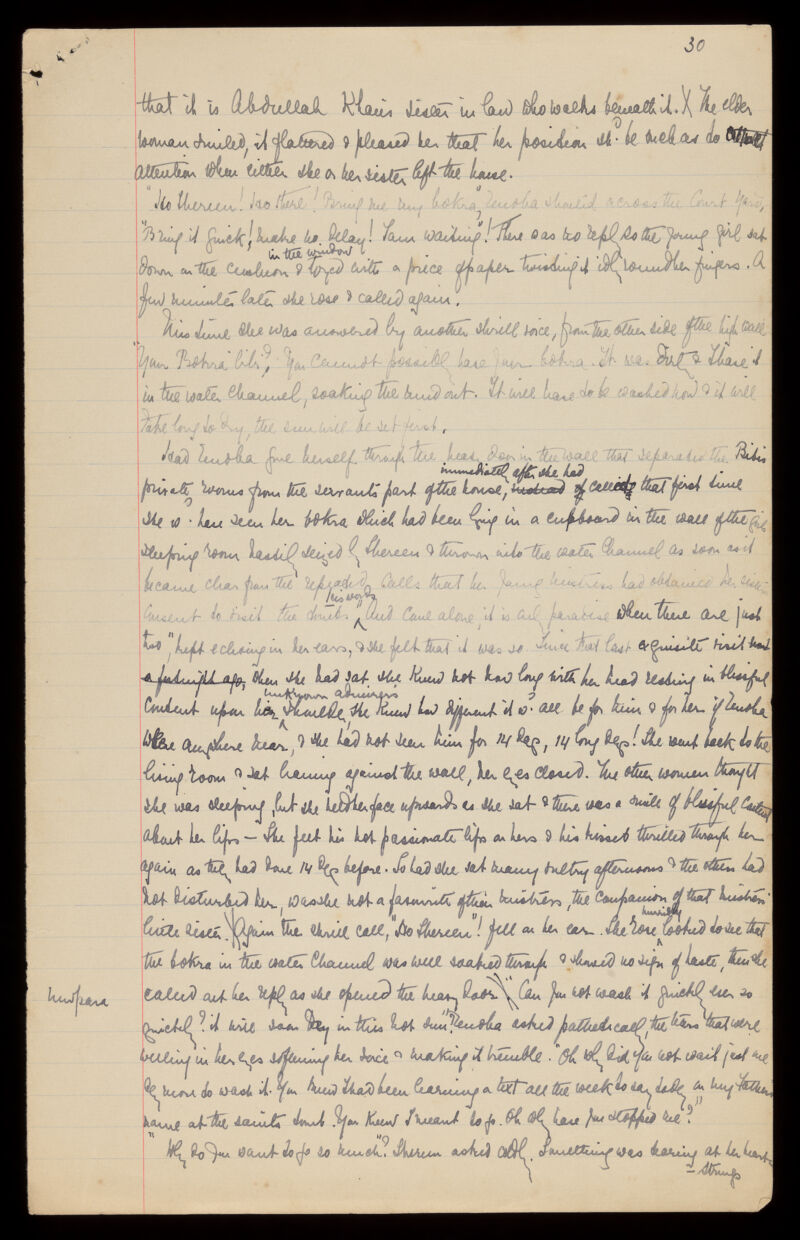 30
that it is Abdullah Khan's sister in law who walks beneath it. X The elder
woman smiled, it flattered & pleased her that her position shd. be such as to attract
attention when either she or her sister left the house.
"Iso Shereen! Iso there! Bring me my bokra", Zenoba shouted across the Court Yard,
"Bring it quick! make no delay! I am waiting"! There was no reply so the young girl sat
down on the cushion in the window & toyed with a piece of paper twisting it idly round her fingers. A
few minutes later she rose & called again.
This time she was answered by another shrill voice, from the other side of the high wall
"Your Bokra bibi? You cannot possibly have your bokra. It was dirty & I have it
in the water channel, soaking the mud out. It will have to be washed now & it will
take long to dry, the sun will be set first.
Had Zenoba gone herself through the heavy door in the wall that separated the Bibis
private rooms from the servants part of the house, immediately after she had called that first time
she wd. have seen her bokra which had been lying in a cupboard in the wall of the girls
sleeping room hastily seized by Shereen & thrown into the water channel as soon as it
became clear from the repeated calls that her young mistress had obtained her sister's
consent to visit the tombs. his words "And come alone, it is all paradise when there are just
two", kept echoing in her ears, & she felt that it was so. Since that last exquisite visit
a fortnight ago, when she had sat she knew not how long with her head resting in blissful
content upon her unknown admirer's shoulder, she knew how different it wd. all be for him & for her if Zenoba
were anywhere near, & she had not seen him for 14 days, 14 long days! She went back to the
living room & sat leaning against the wall, her eyes closed. The other women thought
she was sleeping, but she held her face upwards as she sat & there was a smile of blissful content
about her lips — She felt his hot passionate lips on hers & his kisses thrilled through her
again as they had done 14 days before. So had she sat many sultry afternoons & the others had
not disturbed her, was she not a favourite of their mistress, the companion of that mistress'
little sister. X Again the shrill call, "Iso Shereen"! fell on her ear. She rose hurriedly looked to see that
the bokra in the water channel was well soaked through & showed no sign of haste, then she
called out her reply as she opened the heavy door. X "Can you not wash it quickly ever so
quickly? it will soon dry in this hot sun" Zenoba asked pathetically, the tears that were
welling in her eyes softening her voice & making it tremble. "Oh why did you not wait just one
day more to wash it. You knew I had been learning a text all the week to say today in my Father's
name at the saints tomb. You knew I meant to go. Oh why have you stopped me?"
"Why do you want to go so much"? Shereen asked coldly. Something was tearing at her heart-
= strings
new para